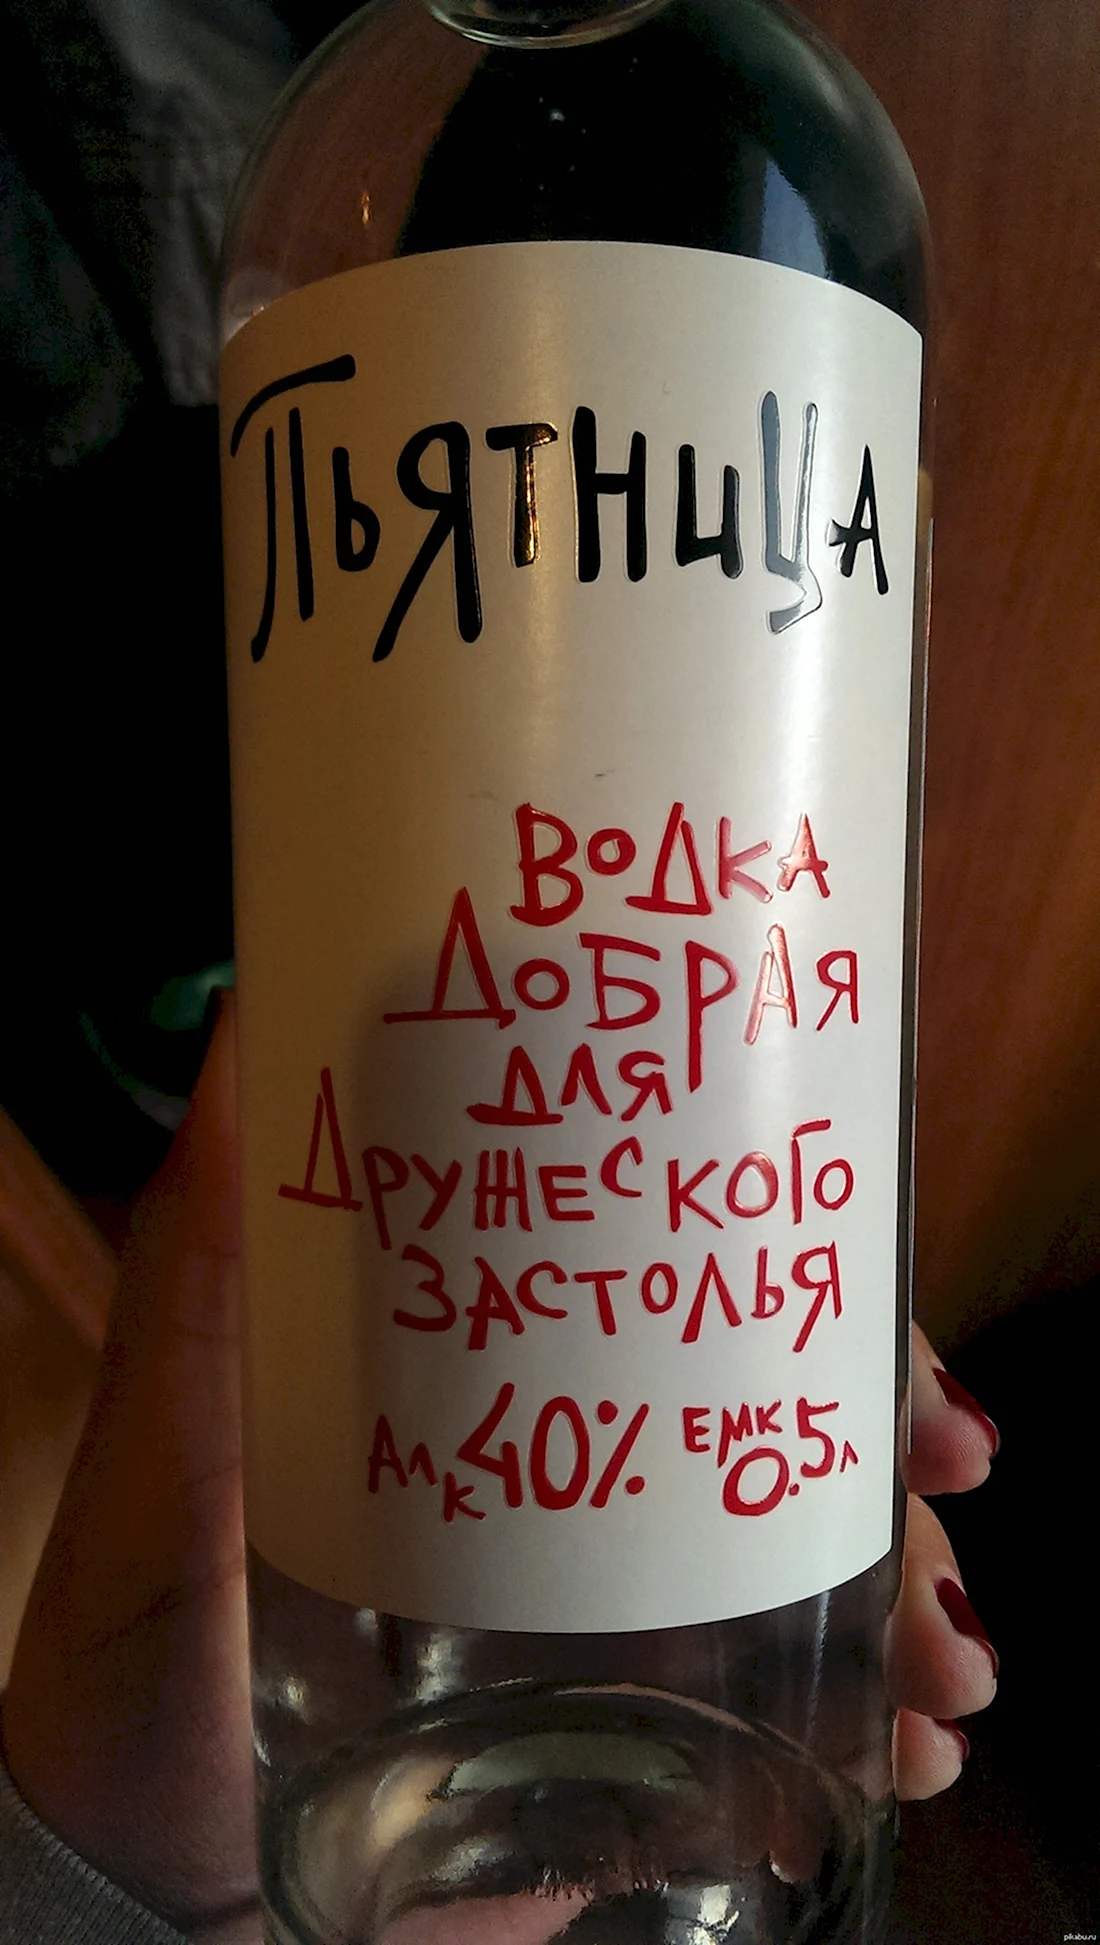 ПЬЯТНИЦА
ВОДКА
ДОБРАЯ
ДЛЯ
ДРУЖЕСКОГО
ЗАСТОЛЬЯ
Алк 40% ЕМК 0.5л
pikabu.ru